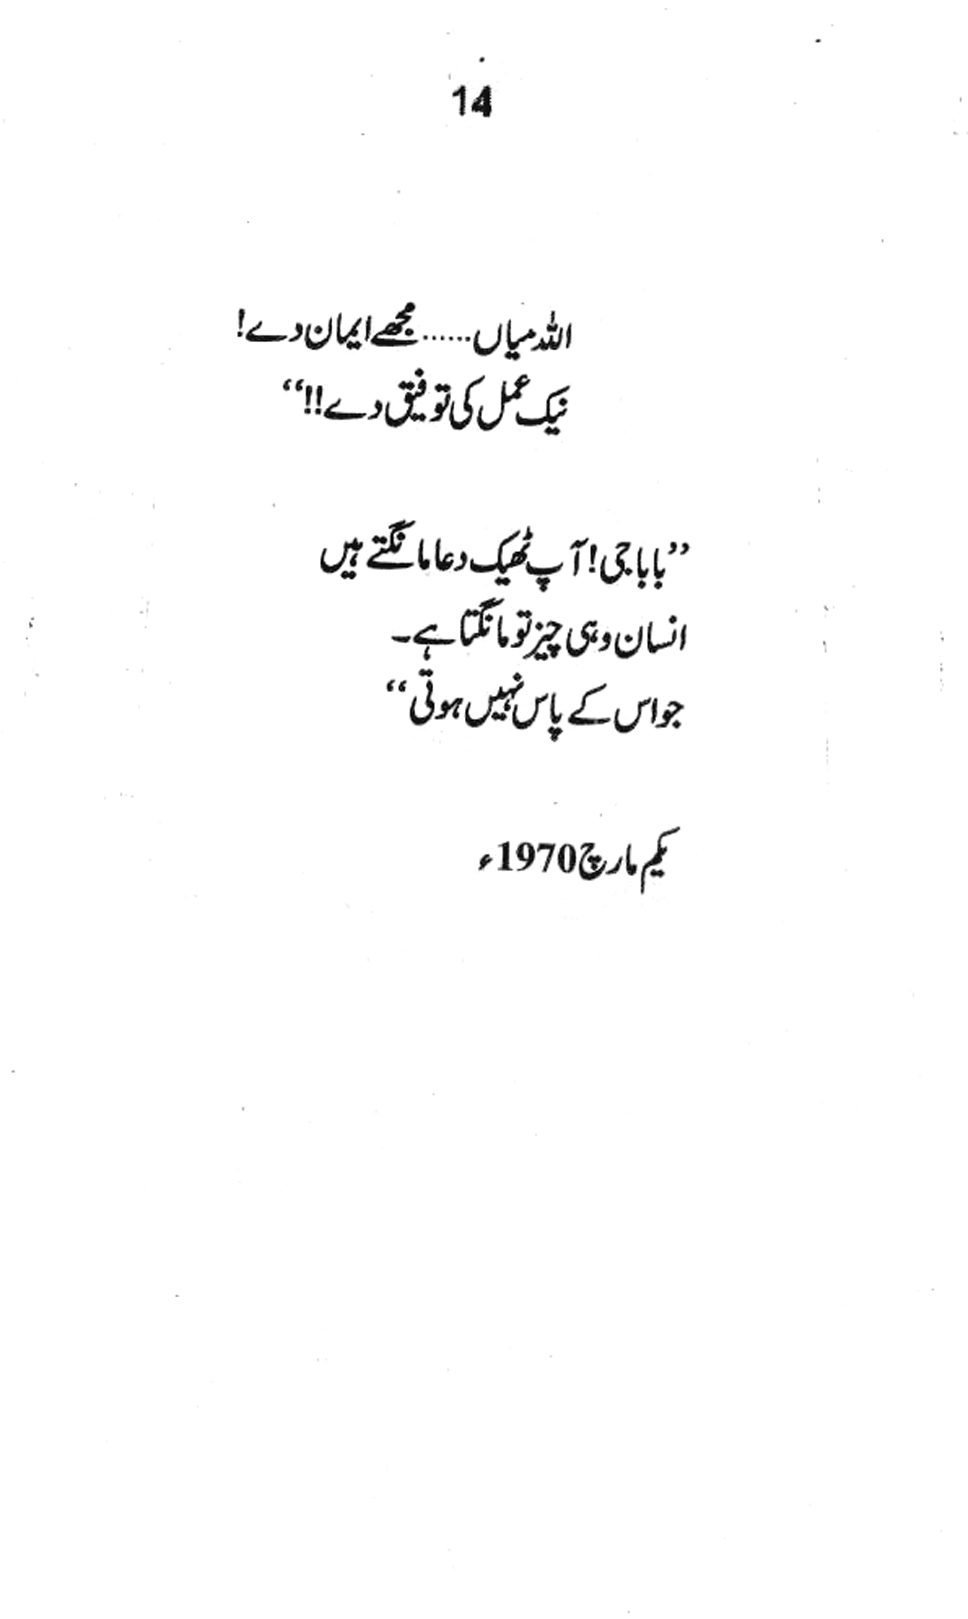 14
اللہ میاں...... مجھے ایمان دے!
نیک عمل کی توفیق دے!!‘‘
’’بابا جی! آپ ٹھیک دعا مانگتے ہیں
انسان وہی چیز تو مانگتا ہے۔
جو اس کے پاس نہیں ہوتی‘‘
یکم مارچ 1970ء